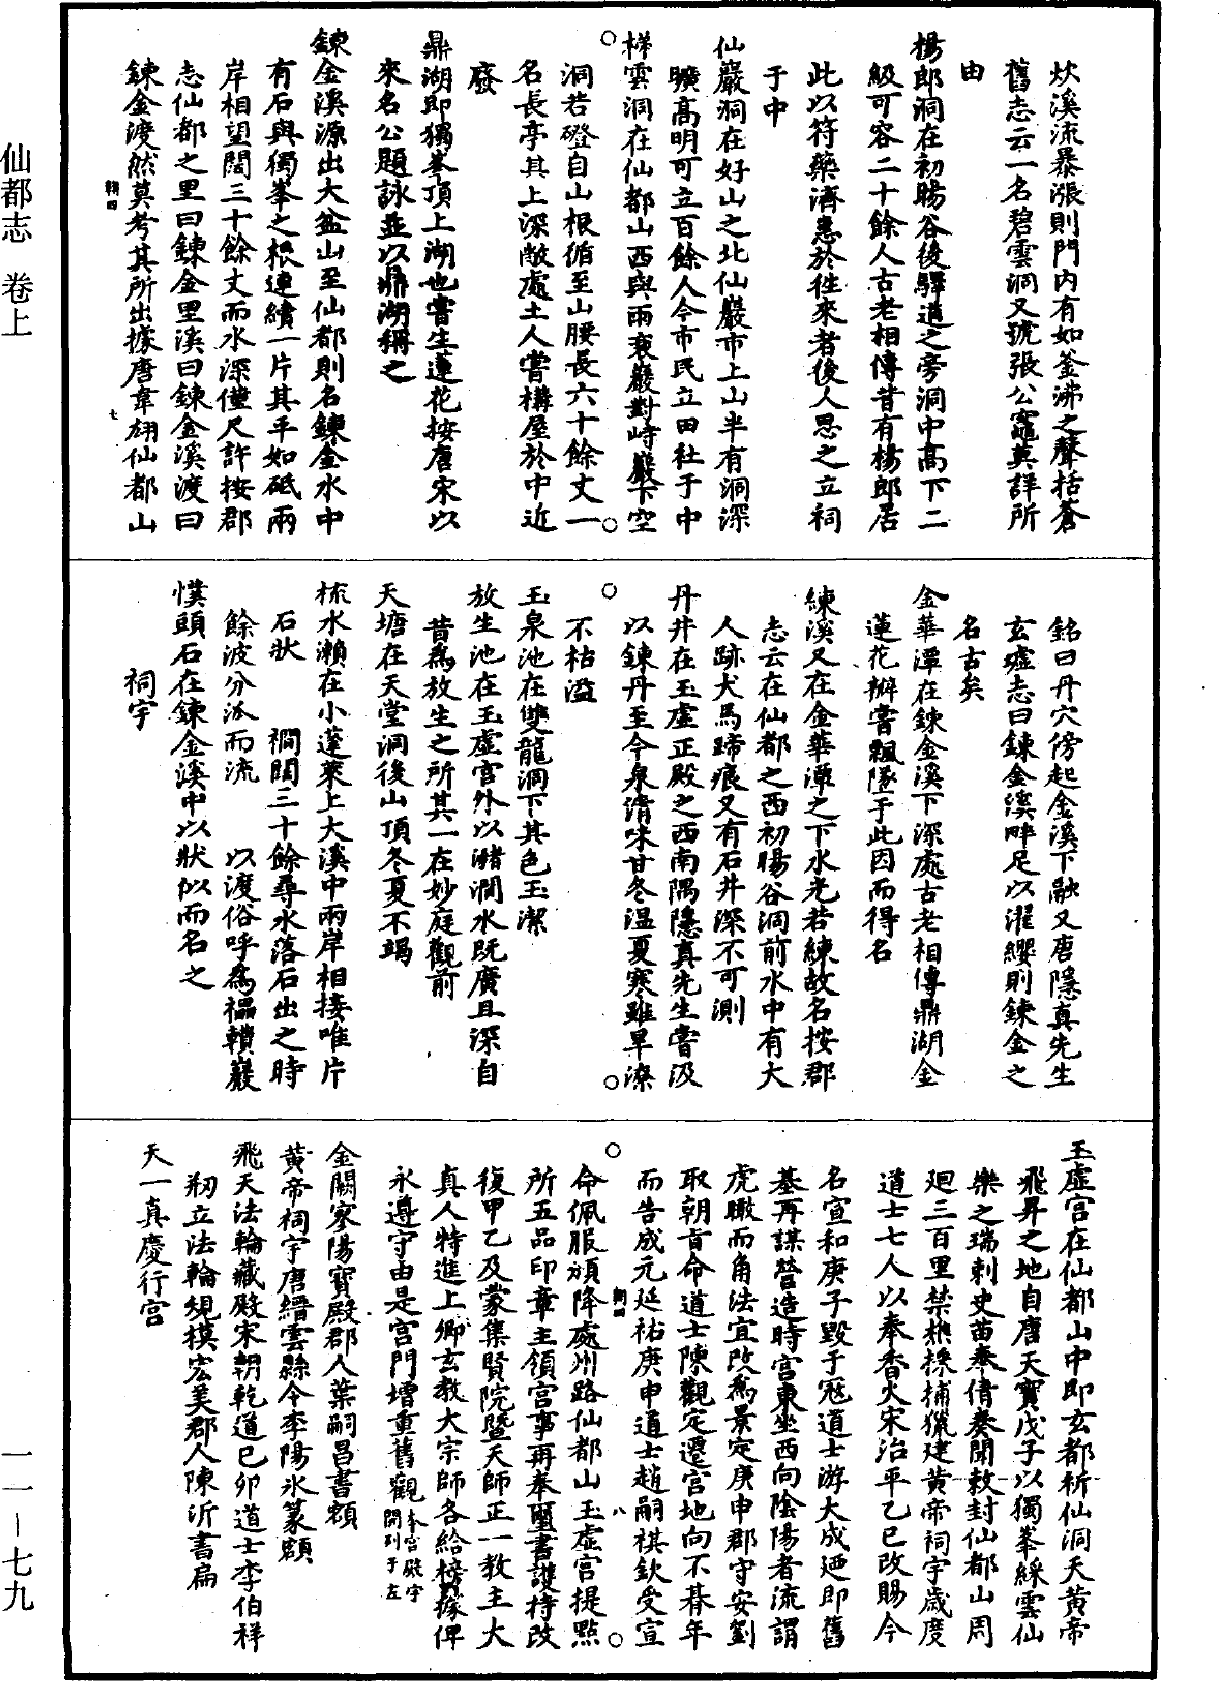 炊溪流暴漲則門内有如釜沸之聲括蒼
舊志云一名碧雲洞又號張公竈莫詳所
由
楊郎洞在初暘谷後驛道之旁洞中高下二
級可容二十餘人古老相傳昔有楊郎居
此以符藥濟惠於徃來者後人思之立祠
于中
仙巖洞在好山之北仙巖市上山半有洞深
曠高明可立百餘人今市民立田社于中
梯雲洞在仙都山西與雨衷巖對峙巖下空
洞若磴自山根循至山腰長六十餘丈一
名長亭其上深敞處土人嘗構屋於中近
廢
鼎湖即獨峯頂上湖也嘗生蓮花按唐宋以
來名公題詠並以鼎湖稱之
鍊金溪源出大盆山至仙都則名鍊金水中
有石與獨峯之根連續一片其平如砥兩
岸相望闊三十餘丈而水深僅尺許按郡
志仙都之里曰鍊金里溪曰鍊金溪渡曰
鍊金渡然莫考其所出據唐韋翃仙都山
銘曰丹穴傍起金溪下融又唐隱真先生
玄墟志曰鍊金溪畔足以濯纓則鍊金之
名古矣
金華潭在鍊金溪下深處古老相傳鼎湖金
蓮花瓣嘗飄墜于此因而得名
練溪又在金華潭之下水光若練故名按郡
志云在仙都之西初暘谷洞前水中有大
人跡犬馬蹄痕又有石井深不可測
丹井在玉虛正殿之西南隅隱真先生嘗汲
以鍊丹至今泉清味甘冬温夏寒雖旱潦
不枯溢
玉泉池在雙龍洞下其色玉潔
放生池在玉虛宫外以瀦澗水既廣且深自
昔為放生之所其一在妙庭觀前
天塘在天堂洞後山頂冬夏不竭
梳水瀨在小蓬萊上大溪中兩岸相接唯片
石狀　　襉闊三十餘尋水落石出之時
餘波分派而流　　以渡俗呼為襵襀巖
幞頭石在鍊金溪中以狀似而名之
祠宇
玉虛宫在仙都山中即玄都祈仙洞天黄帝
飛昇之地自唐天寶戊子以獨峯綵雲仙
樂之瑞刺史苗奉倩奏聞敕封仙都山周
廻三百里禁樵採捕獵建黄帝祠宇歲度
道士七人以奉香火宋治平乙巳改賜今
名宣和庚子毁于宼道士游大成廼即舊
基再謀營造時宫東坐西向陰陽者流謂
虎瞰而角法宜改為景定庚申郡守安劉
取朝旨命道士陳觀定遷宫地向不朞年
而告成元延祐庚申道士趙嗣祺欽受宣
命佩服頒降處州路仙都山玉虛宫提點
所五品印章主領宫事再奉璽書護持改
復甲乙及蒙集賢院暨天師正一教主大
真人特進上卿玄教大宗師各給榜據俾
永遵守由是宫門增重舊觀本宫殿宇開列于左
金闕寥陽寶殿郡人葉嗣昌書額
黄帝祠宇唐縉雲縣令李陽氷篆額
飛天法輪藏殿宋朝乾道己卯道士李伯祥
剏立法輪規模宏美郡人陳沂書扁
天一真慶行宫
仙都志　卷上
一一－七九
朝四
七
朝四
八